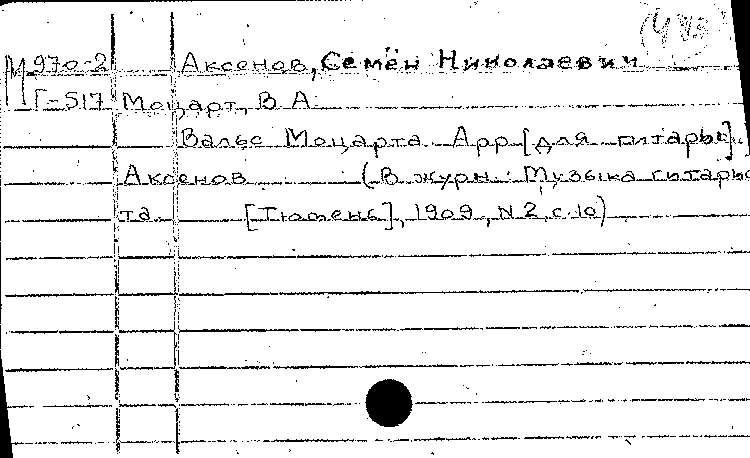 (493)
М 970-2 Аксенов, Семён Николаевич
Г-517 Моцарт, В А.
Вальс Моцарта. Арр [для гитары].
Аксенов (В журн: Музыка гитарис
та. [Тюмень], 1909, N 2, с. 10)